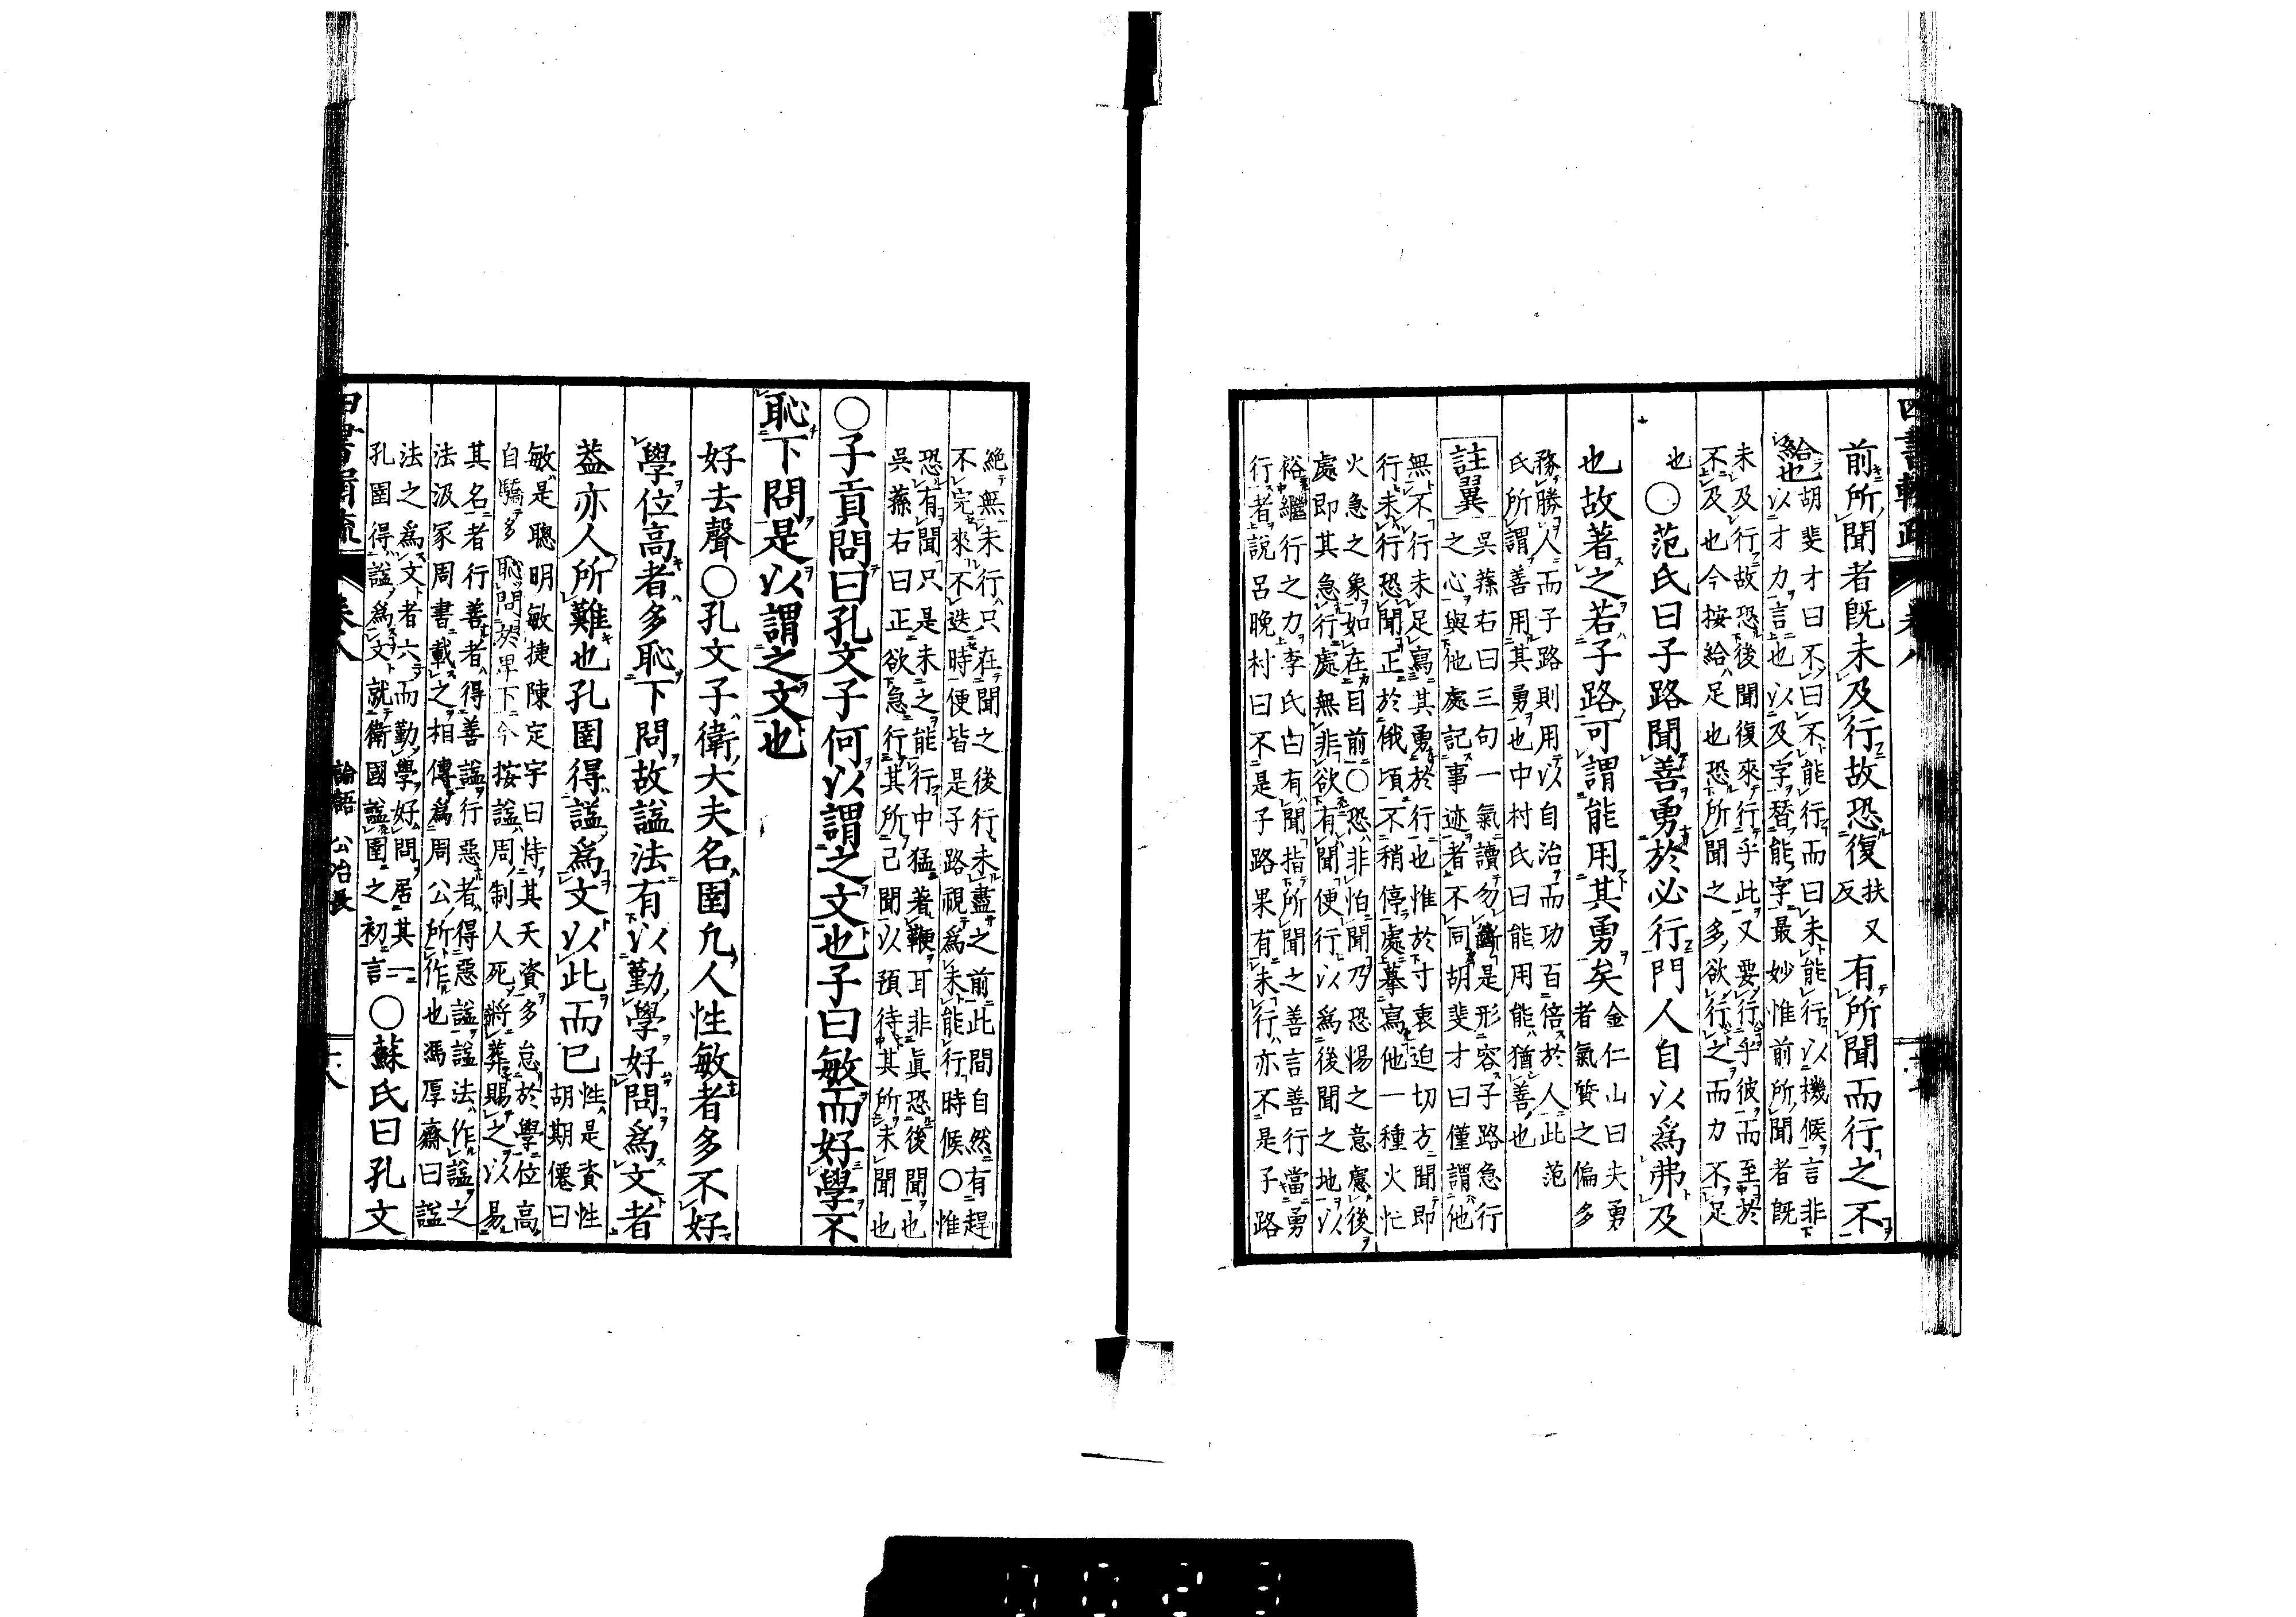 前所聞者既未及行故恐復扶又反有所聞而行之不
給也胡斐才曰不曰不能行而曰未能行以機候言非
以才力言也以及字替能字最妙惟前所聞者既
未及行故恐後聞復來行乎此又要行乎彼而至於
不及也今按給足也恐所聞之多欲行之而力不足
也○范氏曰子路聞善勇於必行門人自以爲弗及
也故著之若子路可謂能用其勇矣金仁山曰夫勇
者氣質之偏多
務勝人而子路則用以自治而功百倍於人此范
氏所謂善用其勇也中村氏曰能用能猶善也
註翼吳蓀右曰三句一氣讀勿斷是形容子路急行
之心與他處記事迹者不同胡斐才曰僅謂他
無不行未足寫其勇於行也惟於寸衷迫切方聞即
行未行恐聞正於俄頃不稍停處摹寫他一種火忙
火急之象如在目前○恐非怕聞乃恐惕之意慮後
處即其急行處無非欲有聞便行以爲後聞之地以
裕繼行之力李氏曰有聞指所聞之善言善行當勇
行者說呂晚村曰不是子路果有未行亦不是子路
絶無未行只在聞之後行未盡之前此間自然有趕
不完來不迭時便皆是子路視爲未能行時候○惟
恐有聞只是未之能行中猛著鞭耳非眞恐後聞也
吳蓀右曰正欲急行其所已聞以預待其所未聞也
○子貢問曰孔文子何以謂之文也子曰敏而好學不
恥下問是以謂之文也
好去聲○孔文子衛大夫名圉凡人性敏者多不好
學位高者多恥下問故謚法有以勤學好問爲文者
葢亦人所難也孔圉得謚爲文以此而已性是資性
胡期僊曰
敏是聰明敏捷陳定宇曰恃其天資多怠於學位高
自驕多恥問於卑下今按謚周制人死將葬賜之以易
其名者行善者得善謚行惡者得惡謚謚法作謚之
法汲冢周書載之相傳爲周公所作也馮厚齋曰謚
法之爲文者六而勤學好問居其一
孔圉得謚爲文就衛國謚圉之初言○蘇氏曰孔文
卷八
論語 公冶長